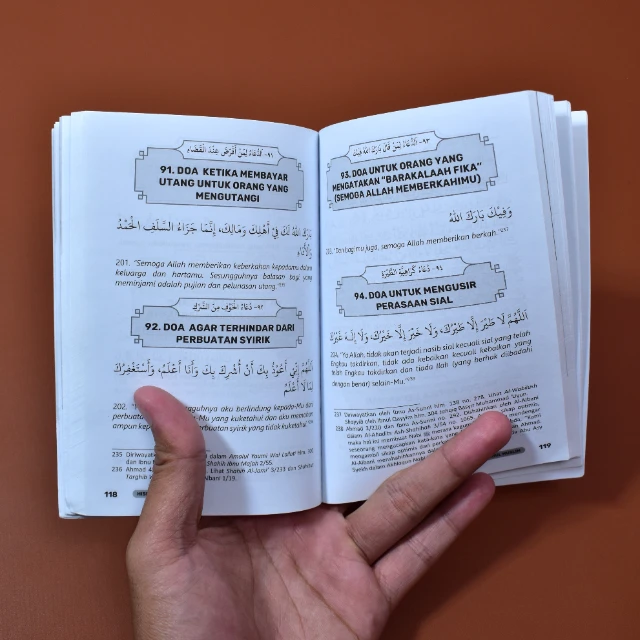 ٩١- الدُّعَاءُ لِمَنْ أَقْرَضَ عِنْدَ الْقَضَاءِ
91. DOA KETIKA MEMBAYAR
UTANG UNTUK ORANG YANG
MENGUTANGI
بَارَكَ اللهُ لَكَ فِيْ أَهْلِكَ وَمَالِكَ، إِنَّمَا جَزَاءُ السَّلَفِ الْحَمْدُ
وَالْأَدَاءُ
201. "Semoga Allah memberikan keberkahan kepadamu dalam
keluarga dan hartamu. Sesungguhnya balasan bagi yang
meminjami adalah pujian dan pelunasan utang."
٩٢- دُعَاءُ الْخَوْفِ مِنَ الشِّرْكِ
92. DOA AGAR TERHINDAR DARI
PERBUATAN SYIRIK
اَللَّهُمَّ إِنِّي أَعُوْذُ بِكَ أَنْ أُشْرِكَ بِكَ وَأَنَا أَعْلَمُ، وَأَسْتَغْفِرُكَ
لِمَا لَا أَعْلَمُ
202. sungguhnya aku berlindung kepada-Mu dari
perbuatan Mu yang kuketahui dan aku memohon
ampun kepada perbuatan syirik yang tidak kuketahui."
235 Diriwayatkan dalam Amalul Yaumi Wal Lailah
dan Ibnu Shahih Ibnu Majah 2/55.
236 Ahmad 4 Lihat Shahih Al-Jami' 3/233 dan Shahihut
Targhib W Albani 1/19.
118
٩٣- الدُّعَاءُ لِمَنْ قَالَ بَارَكَ اللهُ فِيْكَ
93. DOA UNTUK ORANG YANG
MENGATAKAN "BARAKALAAH FIKA"
(SEMOGA ALLAH MEMBERKAHIMU)
وَفِيْكَ بَارَكَ اللهُ
203. "Dan bagimu juga, semoga Allah memberikan berkah."
٩٤- دُعَاءُ كَرَاهِيَةِ الطِّيَرَةِ
94. DOA UNTUK MENGUSIR
PERASAAN SIAL
اَللَّهُمَّ لَا طَيْرَ إِلَّا طَيْرُكَ، وَلَا خَيْرَ إِلَّا خَيْرُكَ، وَلَا إِلَهَ غَيْرُكَ
204. "Ya Allah, tidak akan terjadi nasib sial kecuali sial yang telah
Engkau takdirkan, tidak ada kebaikan kecuali kebaikan yang
telah Engkau takdirkan dan tiada Ilah (yang berhak diibadahi
dengan benar) selain-Mu."
237 Diriwayatkan oleh Ibnu As-Sunni hlm. 138 no. 278. Lihat Al-Wabilush
Shayyib oleh Ibnul Qayyim hlm. 304, tahqiq Basyir Muhammad 'Uyun.
238 Ahmad 2/220 dan Ibnu As-Sunni no. 292. Dishahihkan Al-Albani
dalam Al-Ahadits Ash-Shahihah
119